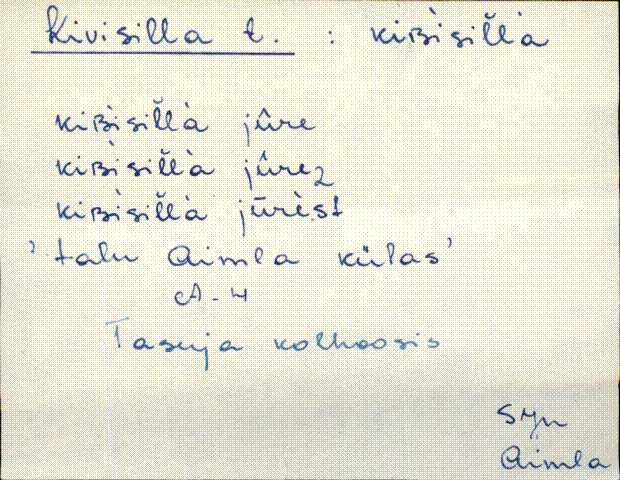 Kivisilla t. : kiʙ̀isìl̆l̆à
kiʙ̀isìl̆l̆à jûre
kiʙ̀isìl̆l̆à jûrez
kiʙ̀isìl̆l̆à jūrèst
' talu Aimla külas'
A-4
Tasuja kolhoosis
Syn
Aimla